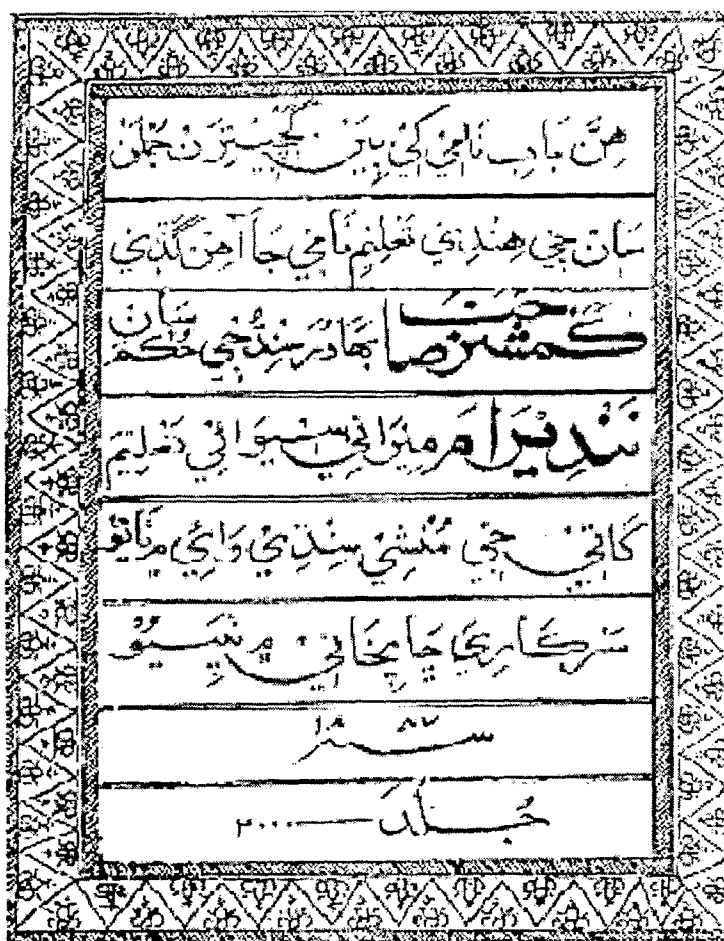 هِنَ بَابَ نَامِي کي ٻِيَنِ ڪيترن جُملن
سَانَ جي هِندِي تَعليم نَامي جَا آهن گڏي
ڪمشنر صاحب بهادر سنڌ جي حُڪم سان
نَنديرَام ميراڻي سيوهاڻي تعليم
کاتي جي مُنشي سنڌي وائي ۾
سرڪاري ڇاپخاني ۾ ڇپيو
سنه
جُلد ٢٠٠٠